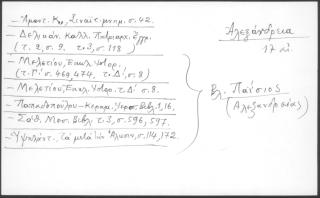 - Ἀμαντ. Κων, Σιναϊτ. μνημ. σ. 42.
- Δελικάν. Καλλ. Πατριαρχ. Ἔγγρ.
(τ. 2, σ. 9. τ. 3, σ. 118)
- Μελετίου, Ἐκκλ. Ἱστορ.
(τ. Γ' σ. 469, 474, τ. Δ' σ. 8)
- Μελετίου, Ἐκκλ. Ἱστορ. τ. Δ' σ. 8.
- Παπαδοπούλου-Κεραμ. Ἱεροσ. Βιβλ. 1, 16.
- Σάθ. Μεσ. Βιβλ. τ. 3, σ. 596, 597.
- Ὑψηλάντ. τὰ μετὰ τὴν Ἅλωσιν, σ. 114, 172.
Ἀλεξάνδρεια
17 αἰ.
Βλ. Παΐσιος
(Ἀλεξανδρείας)